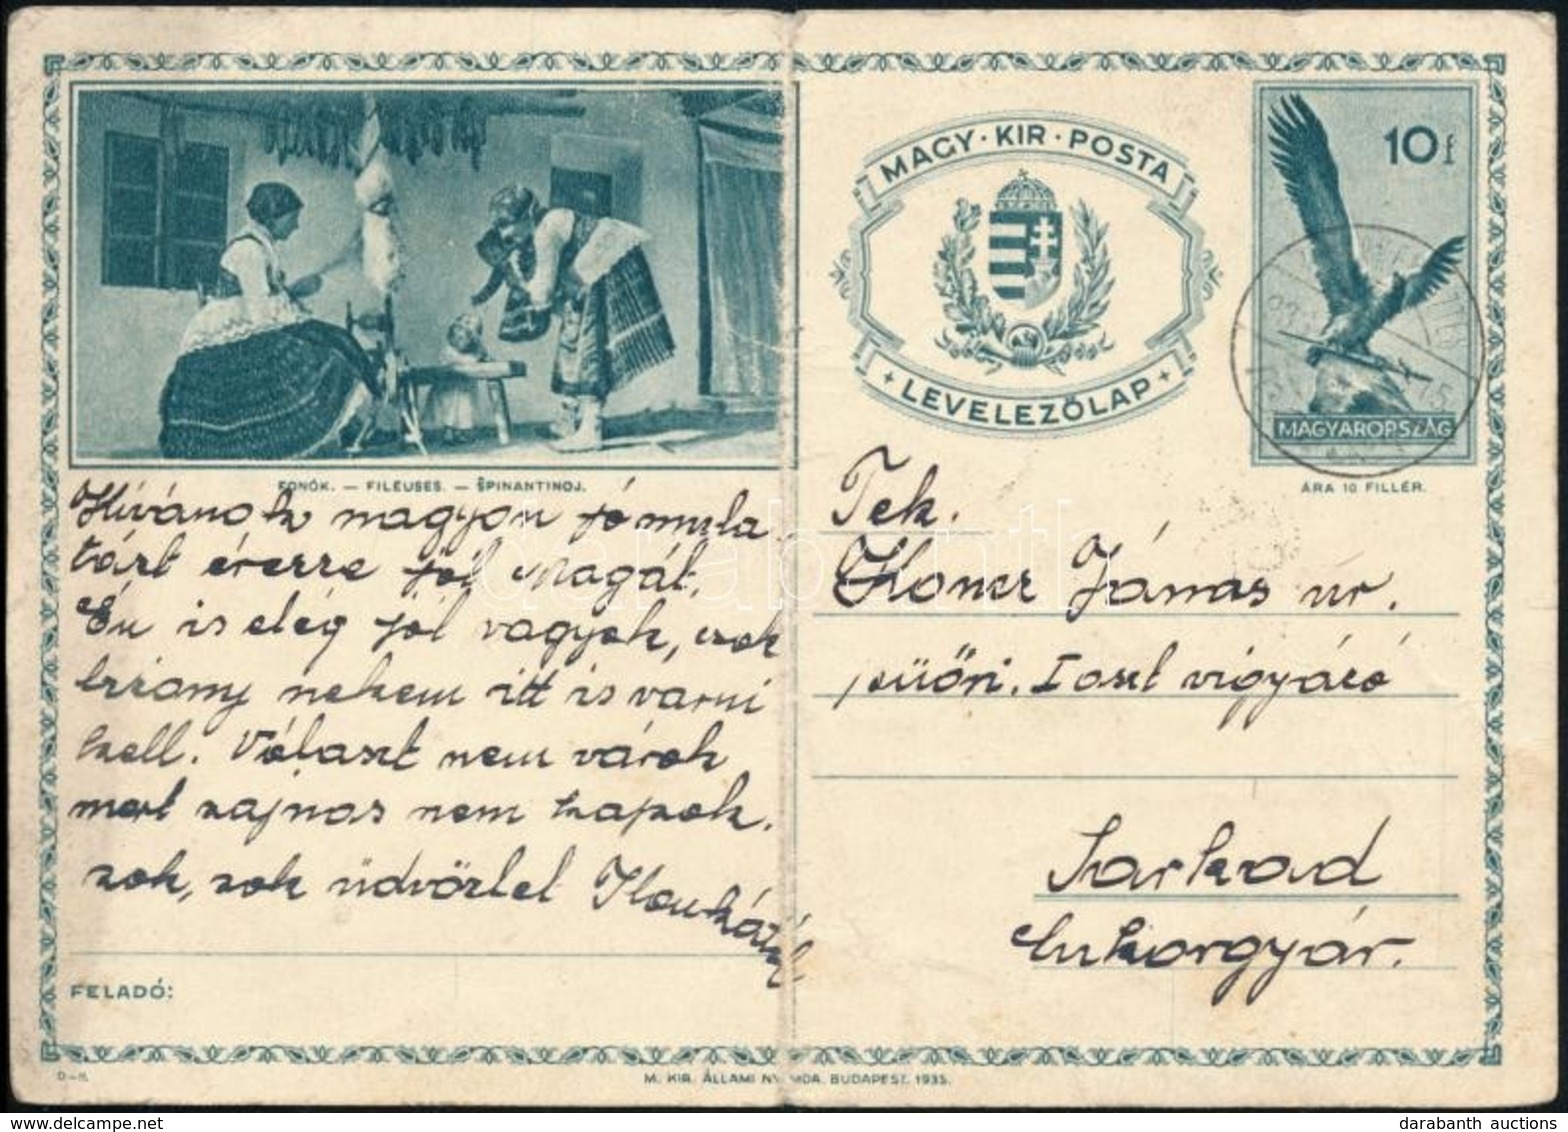 MAGY · KIR · POSTA
LEVELEZŐLAP
10 f
MAGYARORSZÁG
ÁRA 10 FILLÉR.
FONÓK. — FILEUSES. — ŜPINANTINOJ.
Kívánok nagyon jó mula
tást érezze jól Magát.
Én is elég jól vagyok, csak
bizony nekem itt is varni
kell. Választ nem várok
mert sajnos nem kapok.
sok, sok üdvözlet Ilonkától
FELADÓ:
Tek.
János úr.
vigyázó
Sarkad
Cukorgyár.
D—H.
M. KIR. ÁLLAMI NYOMDA. BUDAPEST. 1935.
darabanth
darabanth auctions